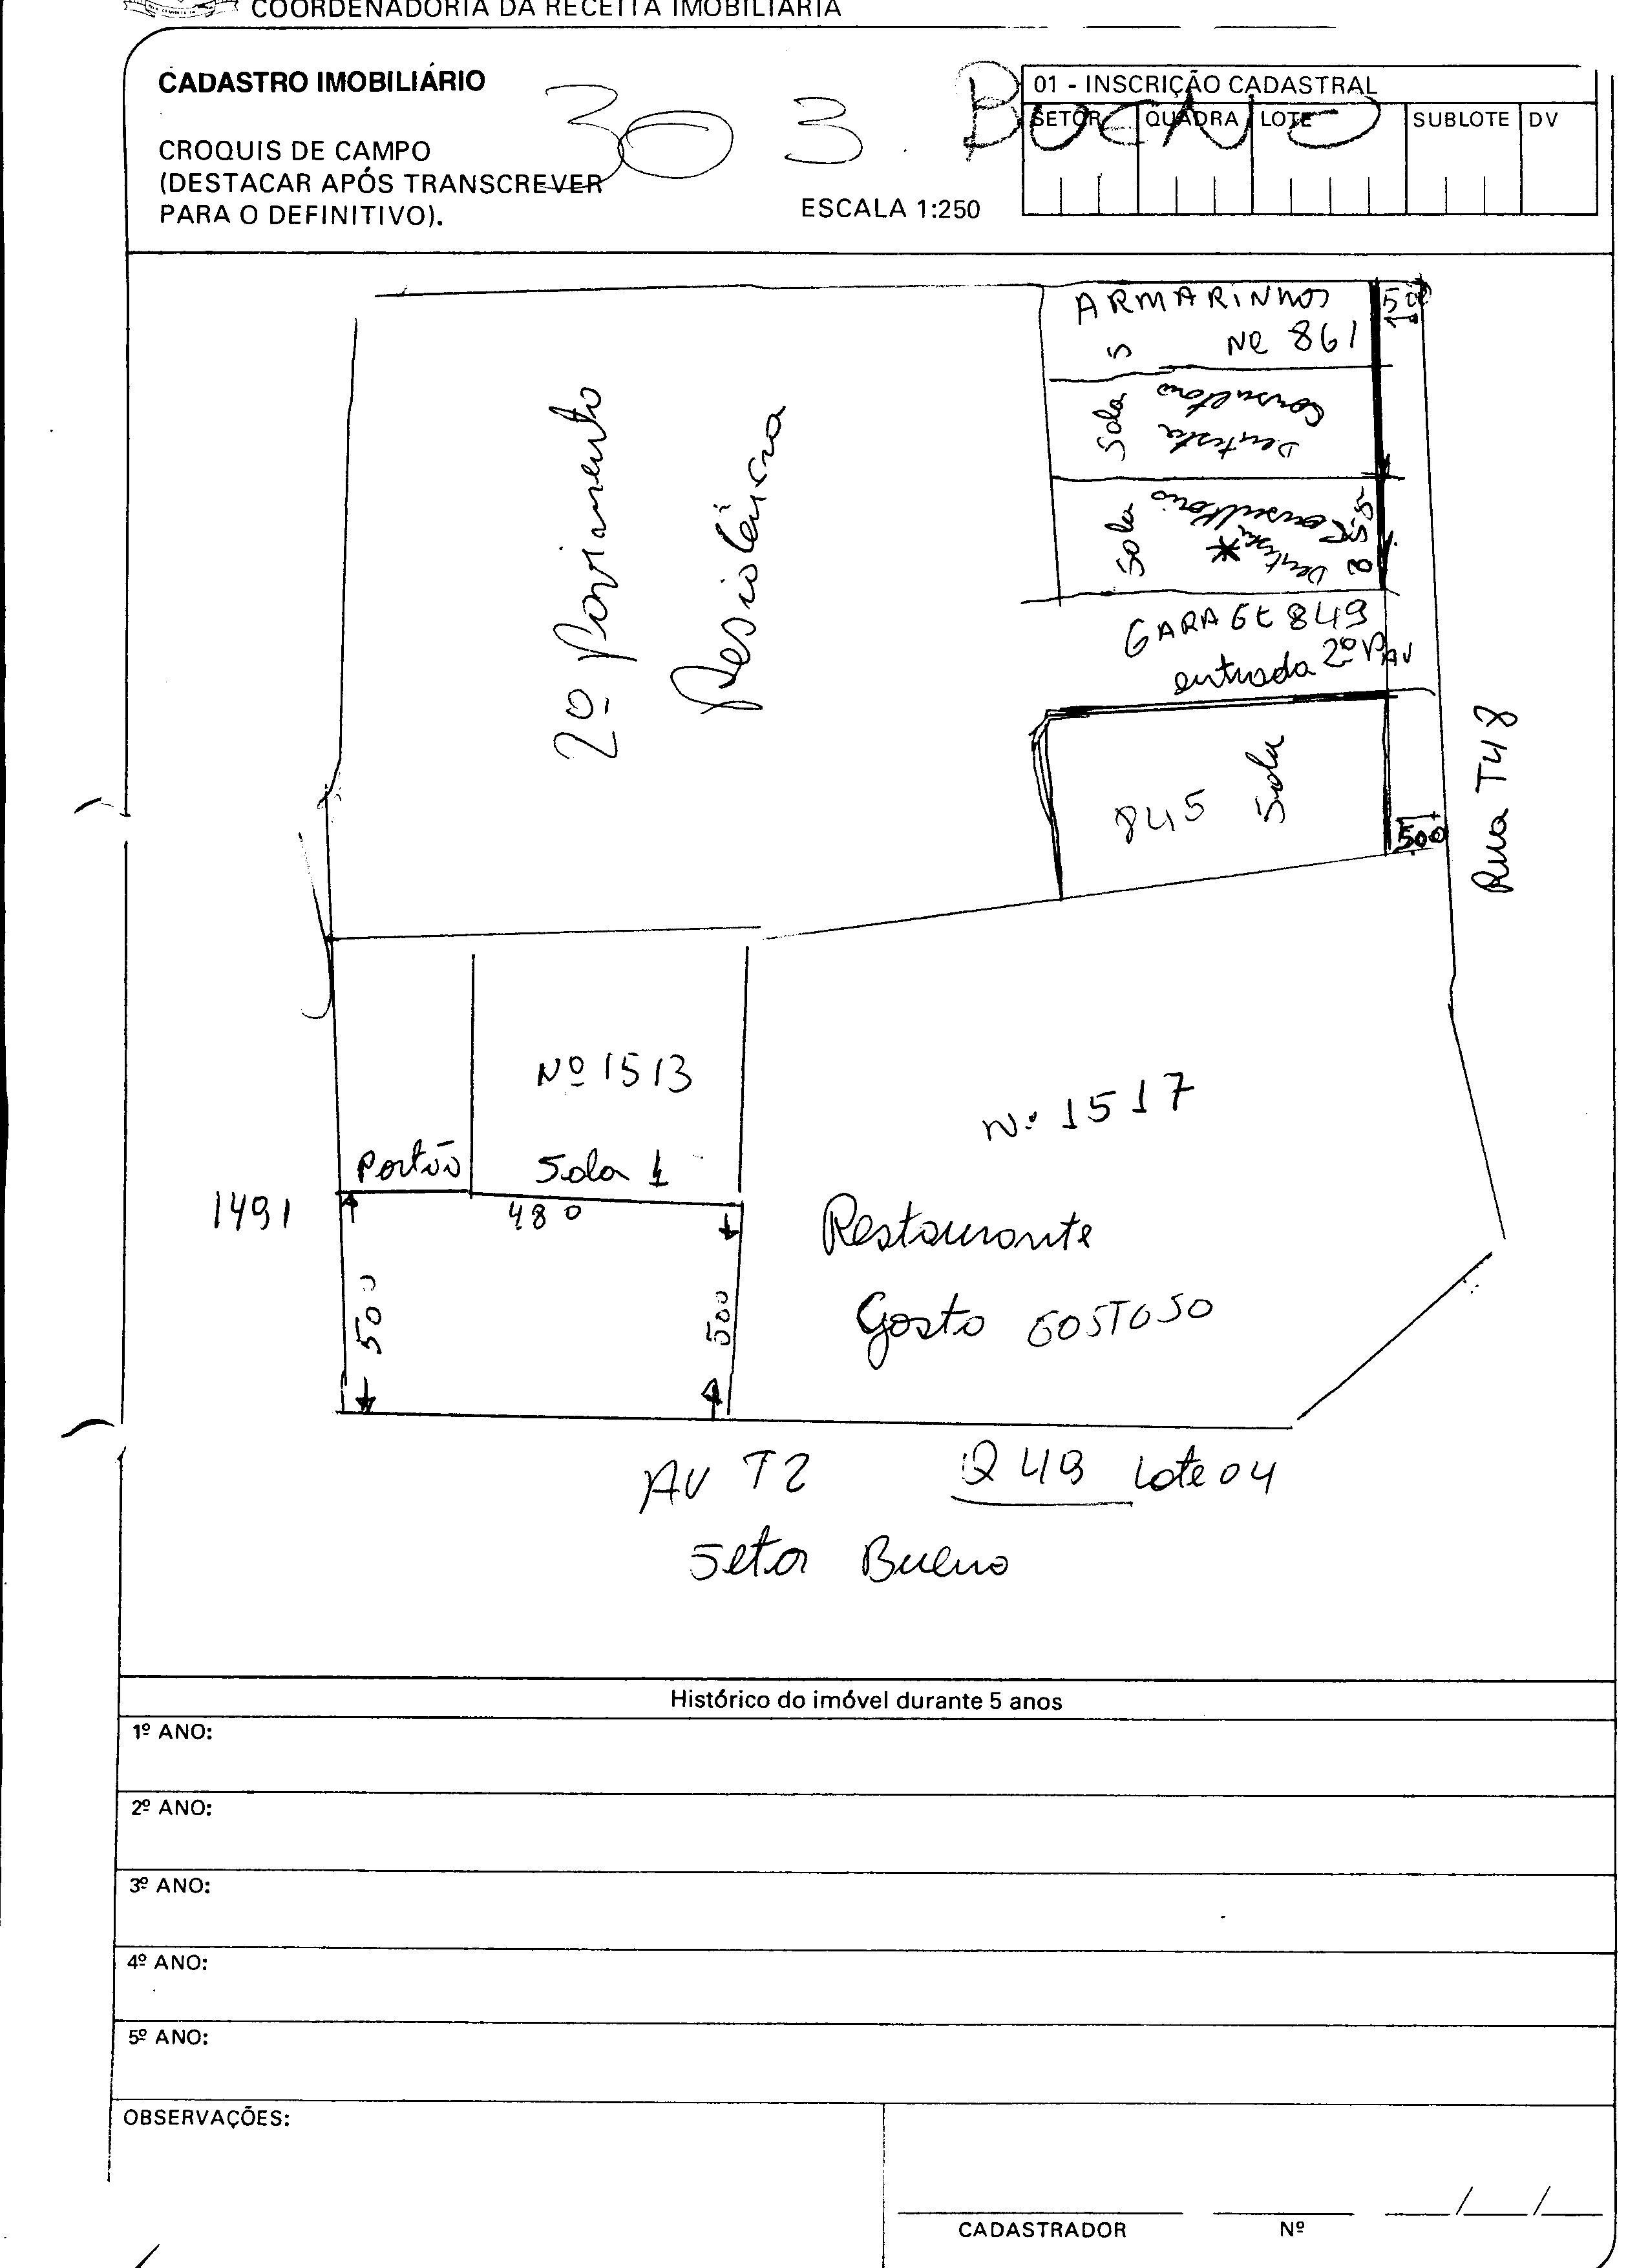 COORDENADORIA DA RECEITA IMOBILIÁRIA
CADASTRO IMOBILIÁRIO
30 3 BUENO
01 - INSCRIÇÃO CADASTRAL
SETOR QUADRA LOTE SUBLOTE DV
CROQUIS DE CAMPO
(DESTACAR APÓS TRANSCREVER
PARA O DEFINITIVO).
ESCALA 1:250
ARMARINHOS
5 Nº 861
500
Sala
Consultorio
Dentista
Sala
Consultorio
Dentista
855
2º Pavimento
Residência
GARAGE 849
entrada 2º PAV
845 Sala
500
Rua T48
Nº 1513
Portão Sala 1
1491
480
500
500
Nº 1517
Restaurante
Gosto GOSTOSO
AV T2 Q 49 Lote 04
Setor Bueno
Histórico do imóvel durante 5 anos
1º ANO:
2º ANO:
3º ANO:
4º ANO:
5º ANO:
OBSERVAÇÕES:
CADASTRADOR Nº